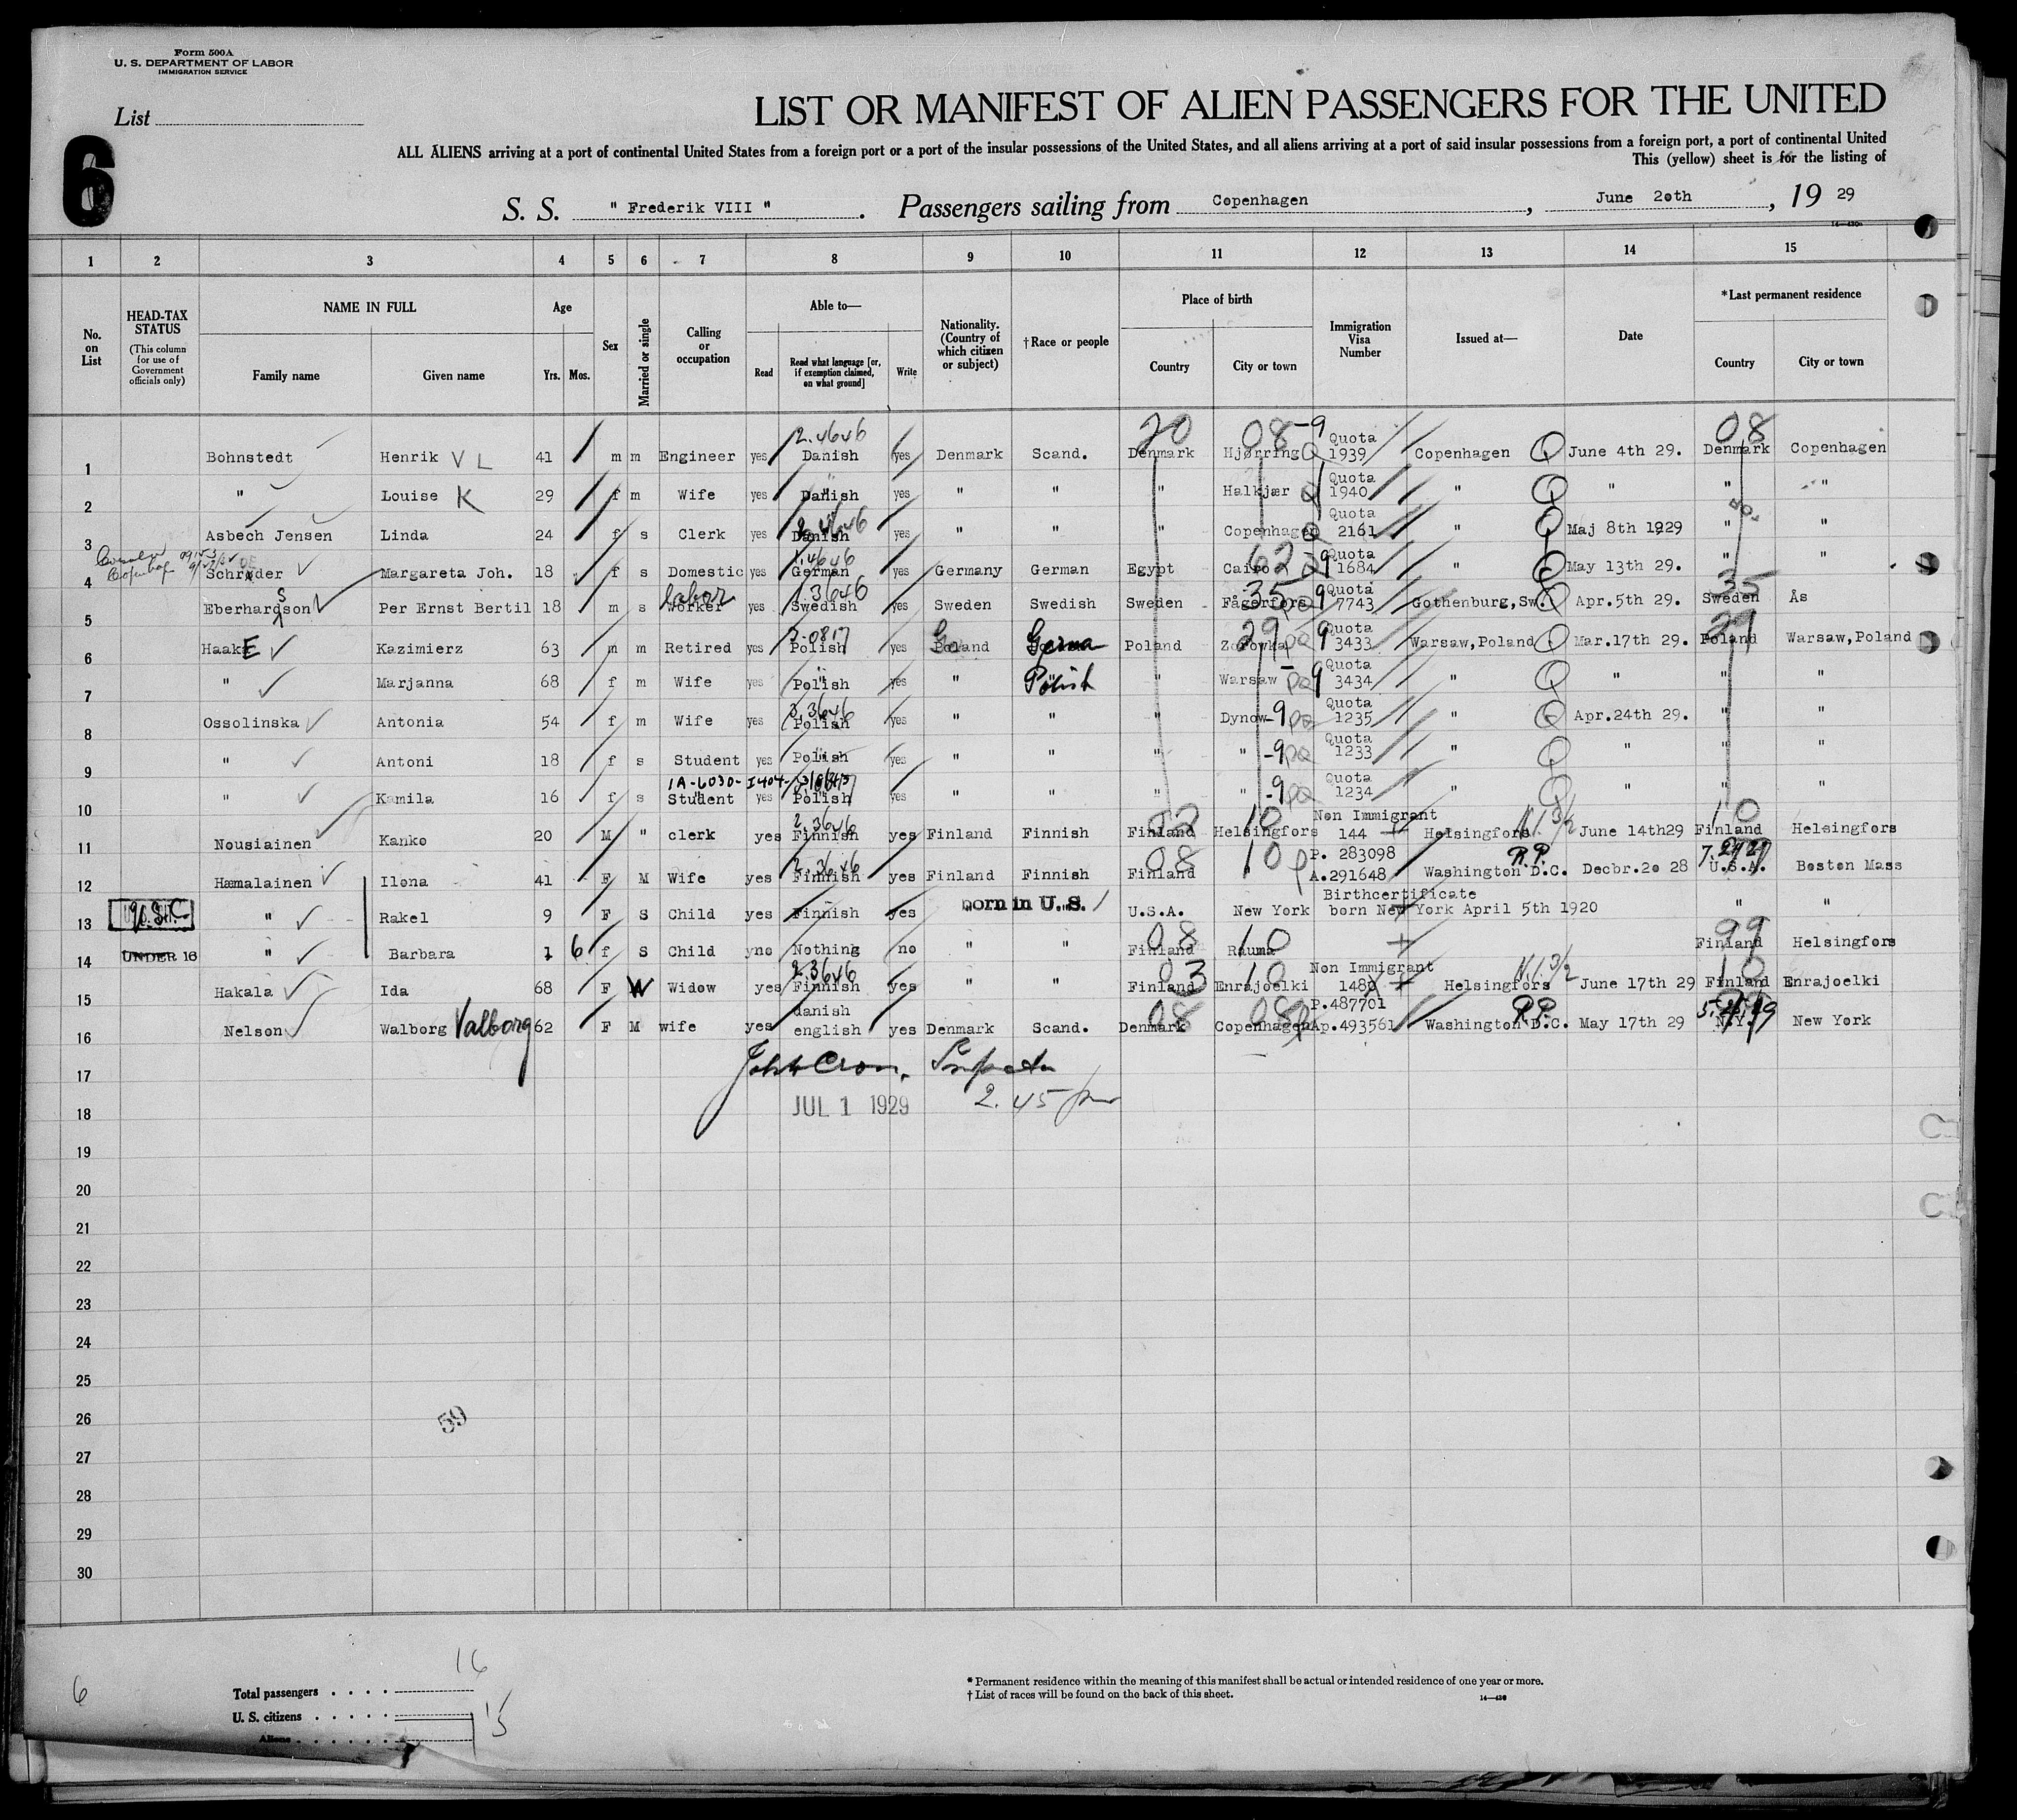 Form 500A
U. S. DEPARTMENT OF LABOR
IMMIGRATION SERVICE
List
6
LIST OR MANIFEST OF ALIEN PASSENGERS FOR THE UNITED
ALL ALIENS arriving at a port of continental United States from a foreign port or a port of the insular possessions of the United States, and all aliens arriving at a port of said insular possessions from a foreign port, a port of continental United
This (yellow) sheet is for the listing of
S. S. " Frederik VIII " . Passengers sailing from Copenhagen , June 20th , 19 29
1 2 3 4 5 6 7 8 9 10 11 12 13 14 15
No. on List
HEAD-TAX STATUS (This column for use of Government officials only)
NAME IN FULL Family name Given name
Age Yrs. Mos.
Sex
Married or single
Calling or occupation
Able to— Read Read what language [or, if exemption claimed, on what ground] Write
Nationality. (Country of which citizen or subject)
†Race or people
Place of birth Country City or town
Immigration Visa Number
Issued at—
Date
*Last permanent residence Country City or town
20 08 -9 08
1 Bohnstedt Henrik V L 41 m m Engineer yes 2.4646 Danish yes Denmark Scand. Denmark Hjørring Quota 1939 Copenhagen Q June 4th 29. Denmark Copenhagen
2 " Louise K 29 f m Wife yes Danish yes " " " Halkjær Quota 1940 " Q " " "
3 Asbech Jensen Linda 24 f s Clerk yes Danish yes " " " Copenhagen Quota 2161 " Q Maj 8th 1929 " "
4 Schrøder Margareta Joh. 18 f s Domestic yes German yes Germany German Egypt Cairo 62 Quota 1684 " Q May 13th 29. " "
5 Eberhardson S Per Ernst Bertil 18 m s labor worker yes 1.3646 Swedish yes Sweden Swedish Sweden Fågerfors 35 Quota 7743 Gothenburg,Sw. Apr.5th 29. 35 Sweden Ås
6 HaakE Kazimierz 63 m m Retired yes Polish yes Poland Poland 29 Quota 3433 Warsaw,Poland Q Mar.17th 29. 29 Poland Warsaw,Poland
7 " Marjanna 68 f m Wife yes Polish yes " Polish " Warsaw Quota 3434 " Q " " "
8 Ossolinska Antonia 54 f m Wife yes 3.3646 Polish yes " " " Dynow -9 Quota 1235 " Q Apr.24th 29. " "
9 " Antoni 18 f s Student yes Polish yes " " " " -9 Quota 1233 " Q " " "
10 " Kamila 16 f s Student yes Polish yes " " " " -9 Quota 1234 " Q " " "
11 Nousiainen Kanko 20 M " clerk yes 2.3646 Finnish yes Finland Finnish Finland Helsingfors 10 Non Immigrant 144 Helsingfors June 14th29 10 Finland Helsingfors
12 Hæmalainen Ilona 41 F M Wife yes 2.3646 Finnish yes Finland Finnish 08 Finland 10 P. 283098 A.291648 R.P. Washington D.C. Decbr.20 28 U.S.A. Boston Mass
13 U.S.C. " Rakel 9 F S Child yes Finnish yes born in U.S. U.S.A. New York Birthcertificate born New York April 5th 1920 " "
14 UNDER 16 " Barbara 1 6 f S Child no Nothing no " " 08 Finland Rauma 10 99 Finland Helsingfors
15 Hakala Ida 68 F W Widow yes 2.3646 Finnish yes " " 03 Finland Enrajoelki 10 Non Immigrant 1480 Helsingfors June 17th 29 10 Finland Enrajoelki
16 Nelson Walborg Valborg 62 F M wife yes danish english yes Denmark Scand. 08 Denmark Copenhagen 08 P.487701 Ap.493561 R.P. Washington D.C. May 17th 29 N.Y. New York
17
JUL 1 1929 2.45 pm
18
19
20
21
22
23
24
25
26
59
27
28
29
30
6
Total passengers 16
U. S. citizens
Aliens 15
* Permanent residence within the meaning of this manifest shall be actual or intended residence of one year or more.
† List of races will be found on the back of this sheet. 14—430